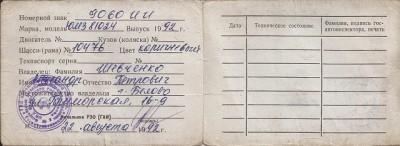 Номерной знак 9060 ИИ
Марка, модель ЮМЗ 81024 Выпуск 1992 г.
Двигатель № Кузов (коляска) №
Шасси (рама) № 10476 Цвет коричневый
Техпаспорт серия №
Владелец: Фамилия Шевченко
Имя Александр Отчество Петрович
Местожительство владельца г. Белово
ул. Приморская, 16-9
Начальник РЭО (ГАИ)
22 августа 1992 г.
Дата
Техническое состояние
Фамилия, подпись гос-
автоинспектора, печать